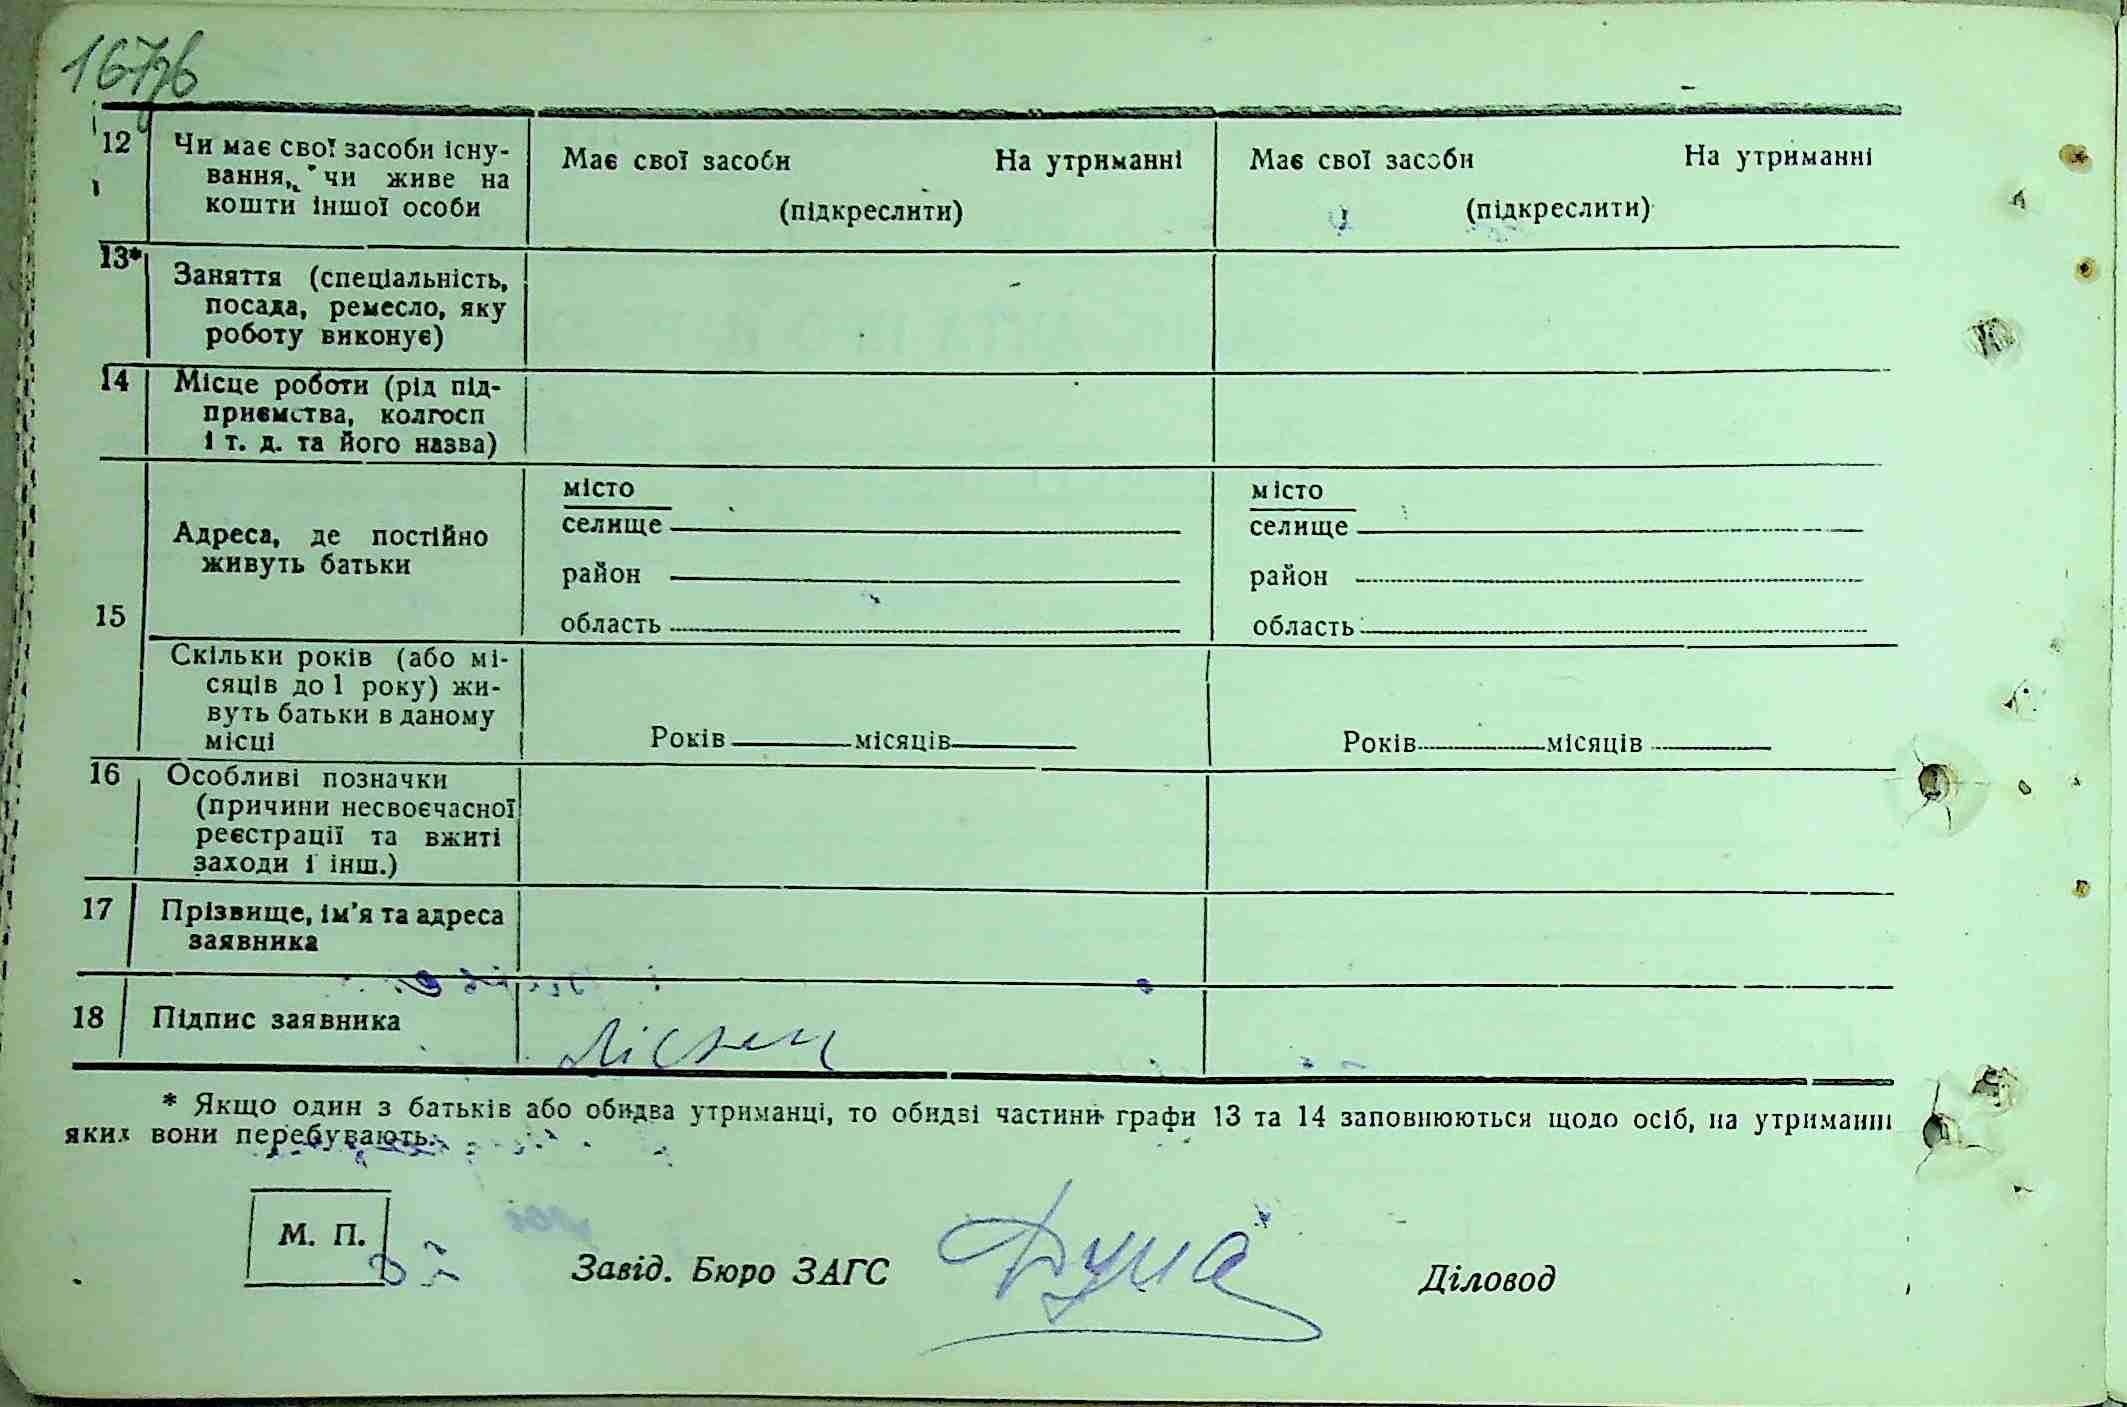 12
Чи має свої засоби існу-
вання, чи живе на
кошти іншої особи
Має свої засоби На утриманні
(підкреслити)
Має свої засоби На утриманні
(підкреслити)
13*
Заняття (спеціальність,
посада, ремесло, яку
роботу виконує)
14
Місце роботи (рід під-
приємства, колгосп
і т. д. та його назва)
15
Адреса, де постійно
живуть батьки
місто
селище
район
область
місто
селище
район
область
Скільки років (або мі-
сяців до 1 року) жи-
вуть батьки в даному
місці
Років місяців
Років місяців
16
Особливі позначки
(причини несвоєчасної
реєстрації та вжиті
заходи і інш.)
17
Прізвище, ім'я та адреса
заявника
18
Підпис заявника
* Якщо один з батьків або обидва утриманці, то обидві частини графи 13 та 14 заповнюються щодо осіб, на утриманні
яких вони перебувають.
М. П.
Завід. Бюро ЗАГС
Діловод